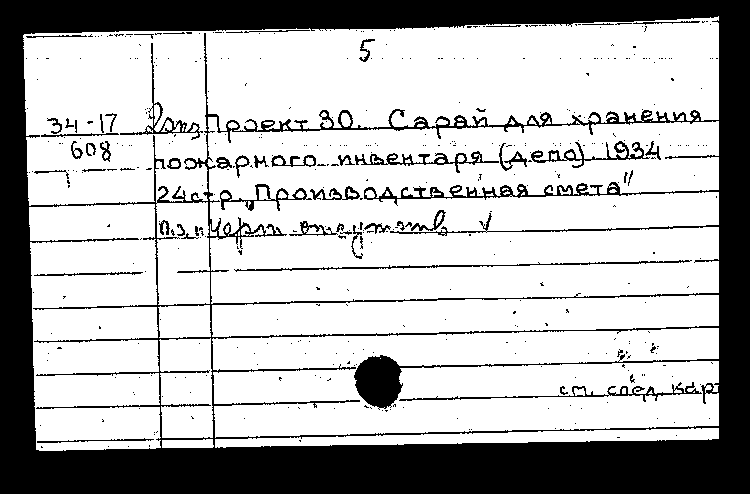 5
34-17 2экз. Проект 30. Сарай для хранения
608 пожарного инвентаря (депо). 1934
24стр. „Производственная смета"
п.з. и черт. отсутств. ✓
см. след. кар